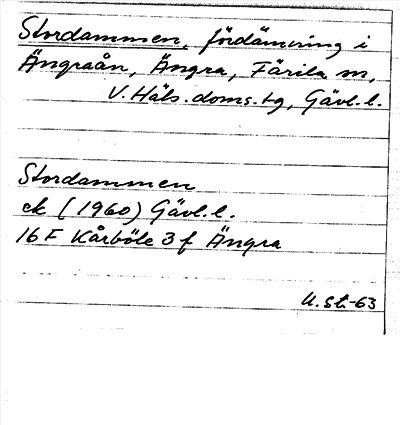 Stordammen, fördämning i
Ängraån, Ängra, Färila sn,
V. Häls. doms.tg, Gävl.l.
Stordammen
ek (1960) Gävl.l.
16 F Kårböle 3 f Ängra
U. St.-63